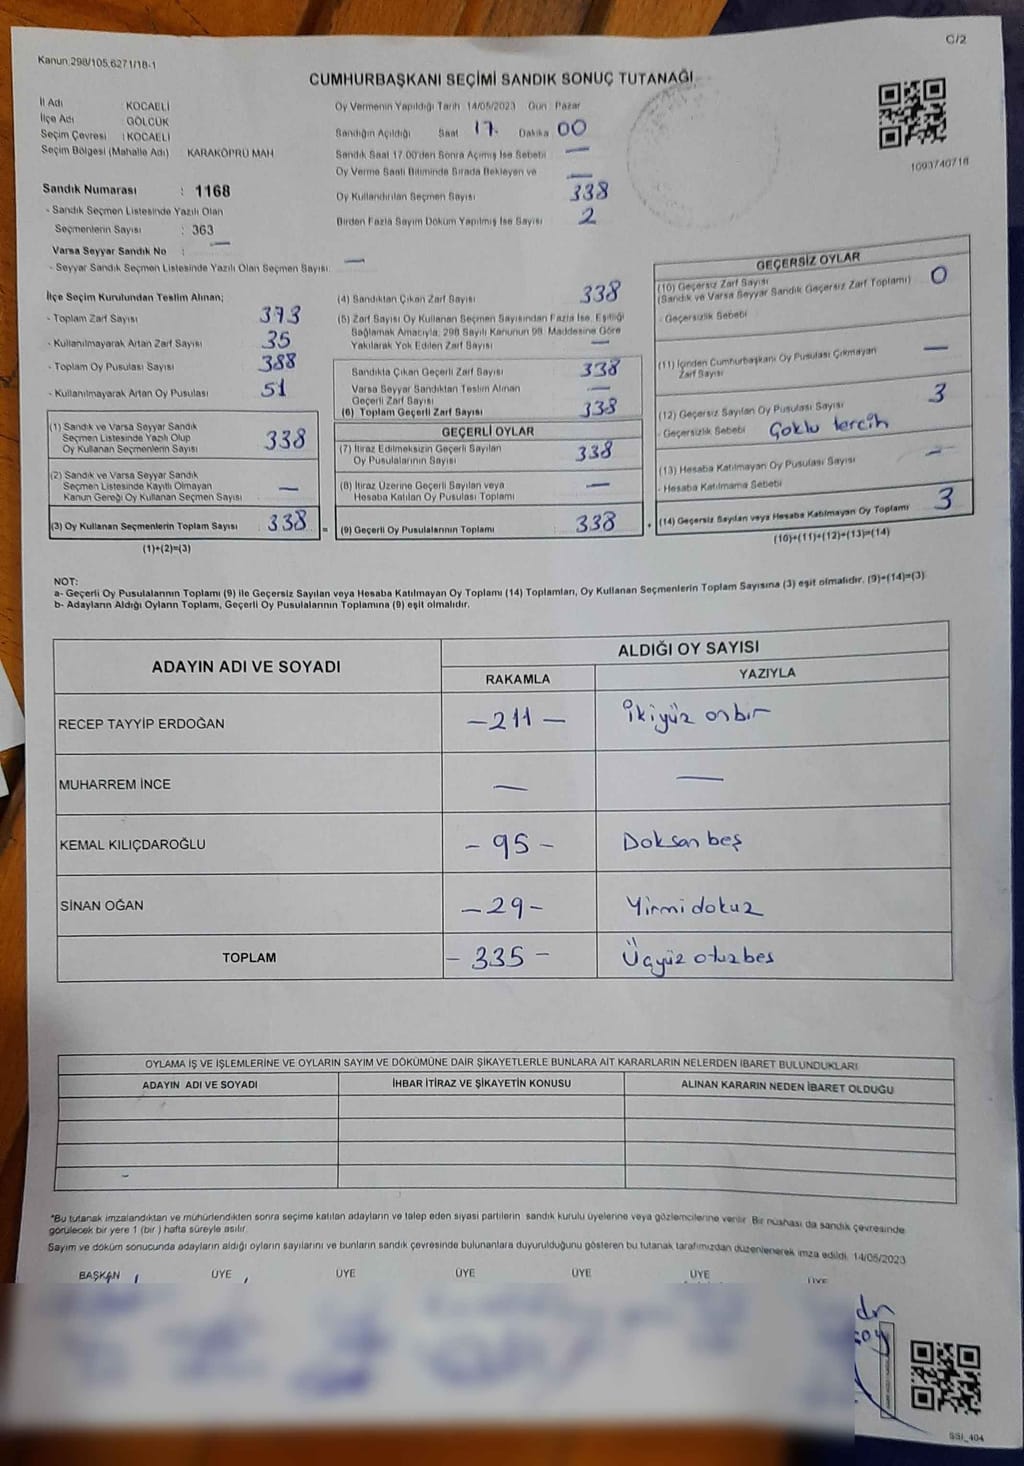 C/2
Kanun:298/105,6271/18-1
CUMHURBAŞKANI SEÇİMİ SANDIK SONUÇ TUTANAĞI
İl Adı : KOCAELİ
İlçe Adı : GÖLCÜK
Seçim Çevresi : KOCAELİ
Seçim Bölgesi (Mahalle Adı) KARAKÖPRÜ MAH
Oy Vermenin Yapıldığı Tarih 14/05/2023 Gün : Pazar
Sandığın Açıldığı Saat 17. Dakika 00
Sandık Saat 17.00'den Sonra Açımış İse Sebebi —
Oy Verme Saati Bitiminde Sırada Bekleyen ve —
Oy Kullandırılan Seçmen Sayısı 338
Birden Fazla Sayım Döküm Yapılmış İse Sayısı 2
1093740718
Sandık Numarası : 1168
- Sandık Seçmen Listesinde Yazılı Olan
Seçmenlerin Sayısı : 363
Varsa Seyyar Sandık No : —
- Seyyar Sandık Seçmen Listesinde Yazılı Olan Seçmen Sayısı: —
İlçe Seçim Kurulundan Teslim Alınan;
- Toplam Zarf Sayısı 373
- Kullanılmayarak Artan Zarf Sayısı 35
- Toplam Oy Pusulası Sayısı 388
- Kullanılmayarak Artan Oy Pusulası 51
(1) Sandık ve Varsa Seyyar Sandık
Seçmen Listesinde Yazılı Olup
Oy Kullanan Seçmenlerin Sayısı 338
(2) Sandık ve Varsa Seyyar Sandık
Seçmen Listesinde Kayıtlı Olmayan
Kanun Gereği Oy Kullanan Seçmen Sayısı —
(3) Oy Kullanan Seçmenlerin Toplam Sayısı 338 =
(1)+(2)=(3)
(4) Sandıktan Çıkan Zarf Sayısı 338
(5) Zarf Sayısı Oy Kullanan Seçmen Sayısından Fazla İse, Eşitliği
Sağlamak Amacıyla; 298 Sayılı Kanunun 98. Maddesine Göre
Yakılarak Yok Edilen Zarf Sayısı —
Sandıkta Çıkan Geçerli Zarf Sayısı 338
Varsa Seyyar Sandıktan Teslim Alınan
Geçerli Zarf Sayısı —
(6) Toplam Geçerli Zarf Sayısı 338
GEÇERLİ OYLAR
(7) İtiraz Edilmeksizin Geçerli Sayılan
Oy Pusulalarının Sayısı 338
(8) İtiraz Üzerine Geçerli Sayılan veya
Hesaba Katılan Oy Pusulası Toplamı —
(9) Geçerli Oy Pusulalarının Toplamı 338 +
GEÇERSİZ OYLAR
(10) Geçersiz Zarf Sayısı 0
(Sandık ve Varsa Seyyar Sandık Geçersiz Zarf Toplamı)
- Geçersizlik Sebebi
(11) İçinden Cumhurbaşkanı Oy Pusulası Çıkmayan —
Zarf Sayısı
(12) Geçersiz Sayılan Oy Pusulası Sayısı 3
- Geçersizlik Sebebi Çoklu tercih
(13) Hesaba Katılmayan Oy Pusulası Sayısı —
- Hesaba Katılmama Sebebi
(14) Geçersiz Sayılan veya Hesaba Katılmayan Oy Toplamı 3
(10)+(11)+(12)+(13)=(14)
NOT:
a- Geçerli Oy Pusulalarının Toplamı (9) ile Geçersiz Sayılan veya Hesaba Katılmayan Oy Toplamı (14) Toplamları, Oy Kullanan Seçmenlerin Toplam Sayısına (3) eşit olmalıdır. (9)+(14)=(3)
b- Adayların Aldığı Oyların Toplamı, Geçerli Oy Pusulalarının Toplamına (9) eşit olmalıdır.
ADAYIN ADI VE SOYADI
ALDIĞI OY SAYISI
RAKAMLA YAZIYLA
RECEP TAYYİP ERDOĞAN —211— İkiyüz onbir
MUHARREM İNCE — —
KEMAL KILIÇDAROĞLU -95- Doksan beş
SİNAN OĞAN —29- Yirmi dokuz
TOPLAM -335- Üçyüz otuzbes
OYLAMA İŞ VE İŞLEMLERİNE VE OYLARIN SAYIM VE DÖKÜMÜNE DAİR ŞİKAYETLERLE BUNLARA AİT KARARLARIN NELERDEN İBARET BULUNDUKLARI
ADAYIN ADI VE SOYADI İHBAR İTİRAZ VE ŞİKAYETİN KONUSU ALINAN KARARIN NEDEN İBARET OLDUĞU
*Bu tutanak imzalandıktan ve mühürlendikten sonra seçime katılan adayların ve talep eden siyasi partilerin sandık kurulu üyelerine veya gözlemcilerine verilir. Bir nüshası da sandık çevresinde
görülecek bir yere 1 (bir ) hafta süreyle asılır.
Sayım ve döküm sonucunda adayların aldığı oyların sayılarını ve bunların sandık çevresinde bulunanlara duyurulduğunu gösteren bu tutanak tarafımızdan düzenlenerek imza edildi. 14/05/2023
BAŞKAN ÜYE ÜYE ÜYE ÜYE ÜYE ÜYE
SSI_404